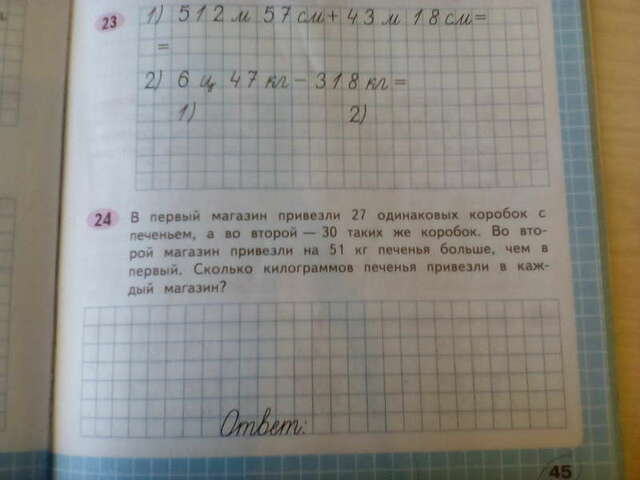 23 1) 512 м 57 см + 43 м 18 см =
=
2) 6 ц 47 кг − 318 кг =
1) 2)
24 В первый магазин привезли 27 одинаковых коробок с
печеньем, а во второй — 30 таких же коробок. Во вто-
рой магазин привезли на 51 кг печенья больше, чем в
первый. Сколько килограммов печенья привезли в каж-
дый магазин?
Ответ:
45